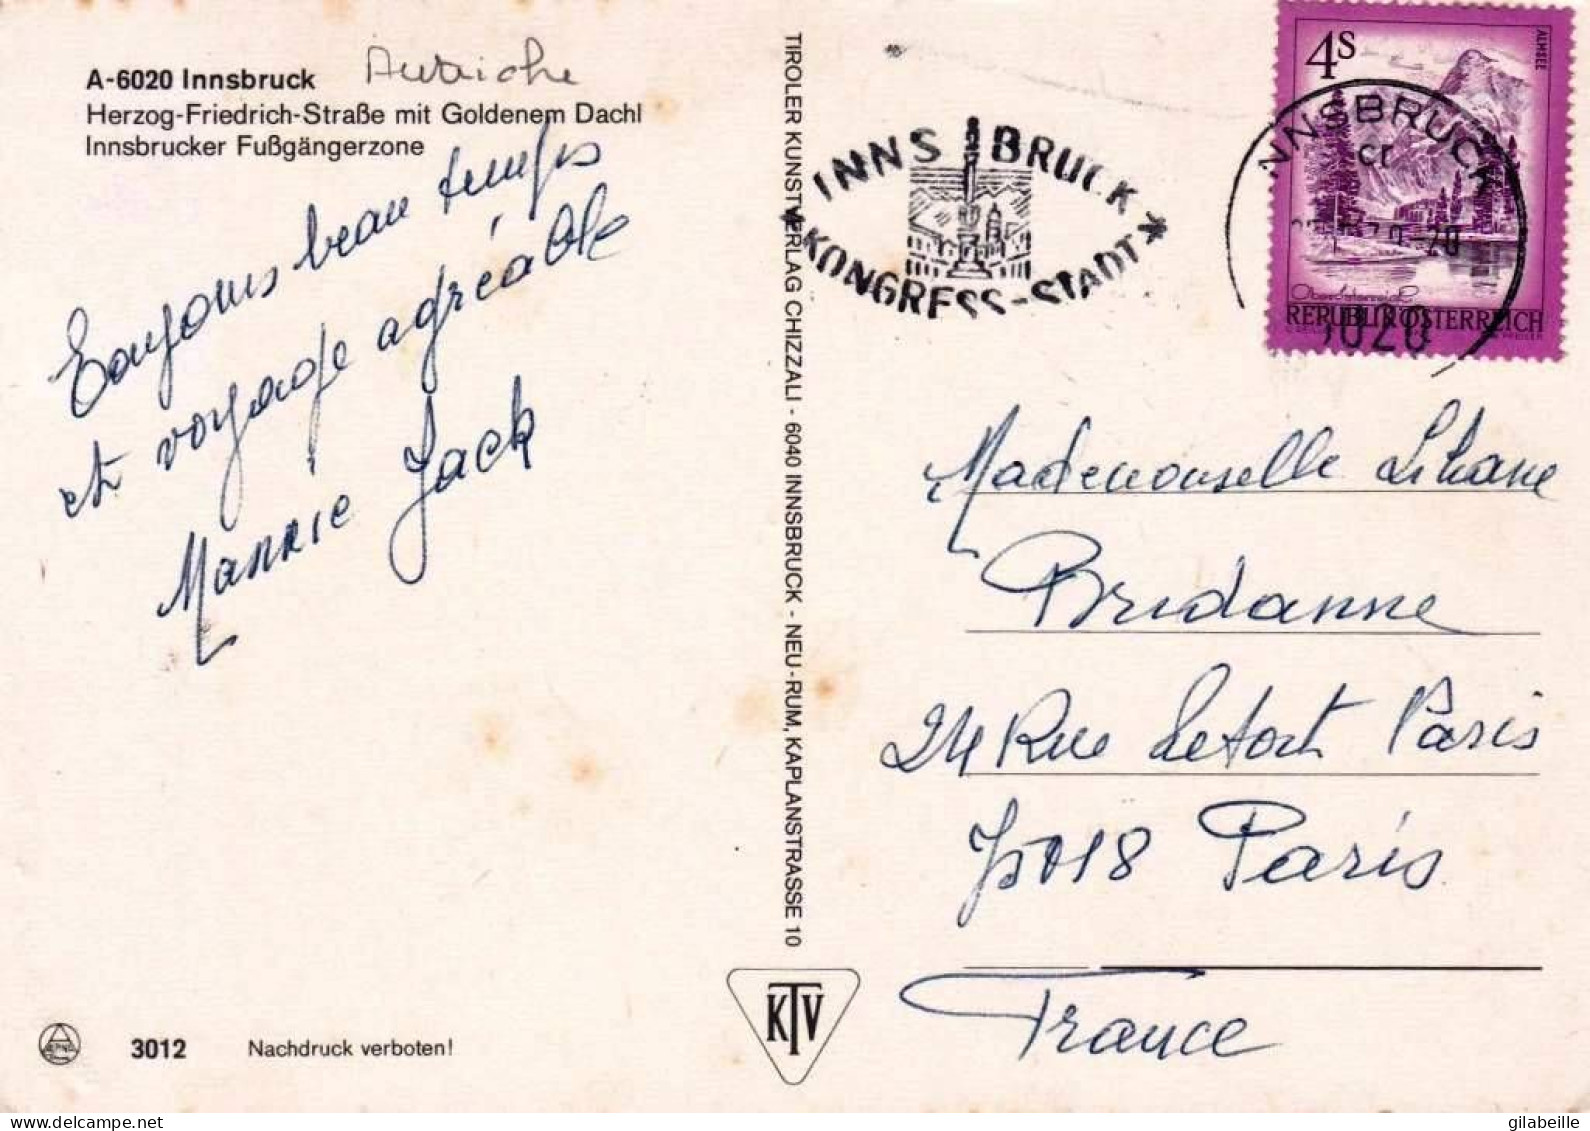 A-6020 Innsbruck Autriche
Herzog-Friedrich-Straße mit Goldenem Dachl
Innsbrucker Fußgängerzone
Toujours beau temps
et voyage agréable
Mannie Jack
TIROLER KUNSTVERLAG CHIZZALI - 6040 INNSBRUCK - NEU-RUM, KAPLANSTRASSE 10
INNSBRUCK
KONGRESS-STADT
4S
ALMSEE
INNSBRUCK
Oberösterreich
REPUBLIK ÖSTERREICH
6020
Mademoiselle Liliane
Bridanne
24 Rue Letort Paris
75018 Paris
France
KTV
3012 Nachdruck verboten!
gilabeille